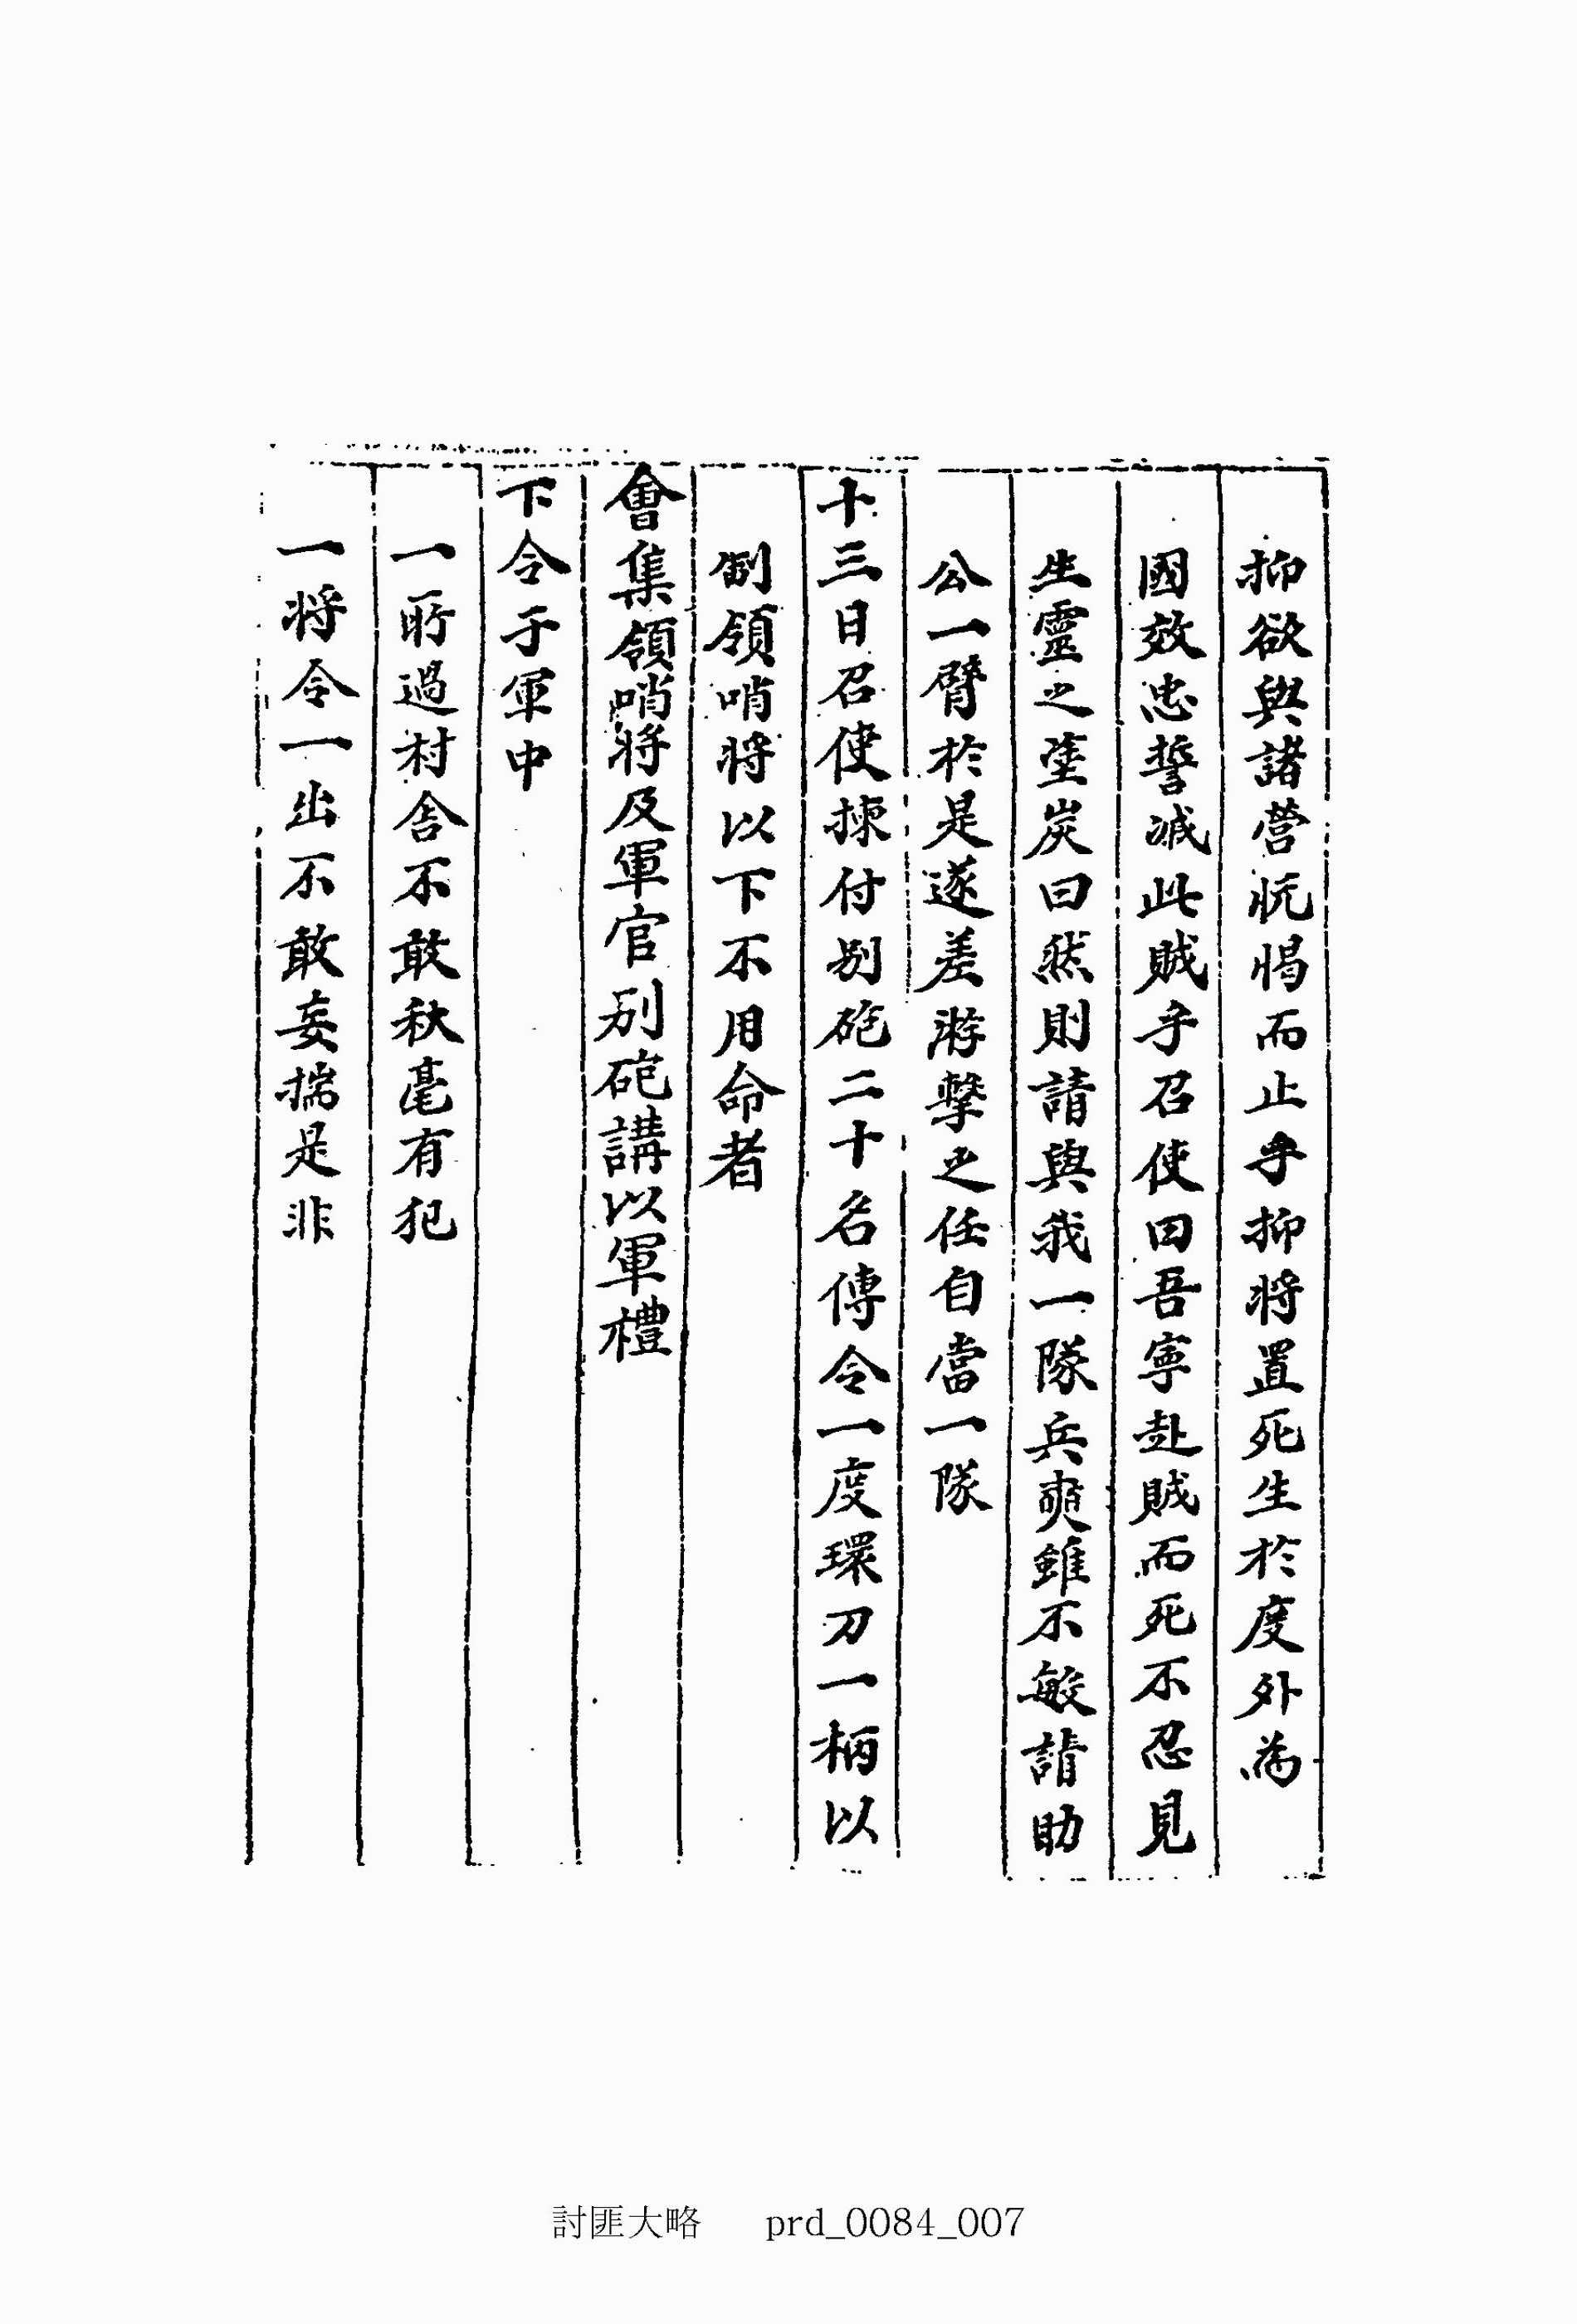 抑欲與諸營忨愒而止乎抑將置死生於度外爲
國效忠誓滅此賊乎召使曰吾寧赴賊而死不忍見
生靈之塗炭曰然則請與我一隊兵奭雖不敏請助
公一臂於是遂差游擊之任自當一隊
十三日召使揀付別砲二十名傳令一度環刀一柄以
制領哨將以下不用命者
會集領哨將及軍官別砲講以軍禮
下令于軍中
一所過村舍不敢秋毫有犯
一將令一出不敢妄揣是非
討匪大略 prd_0084_007